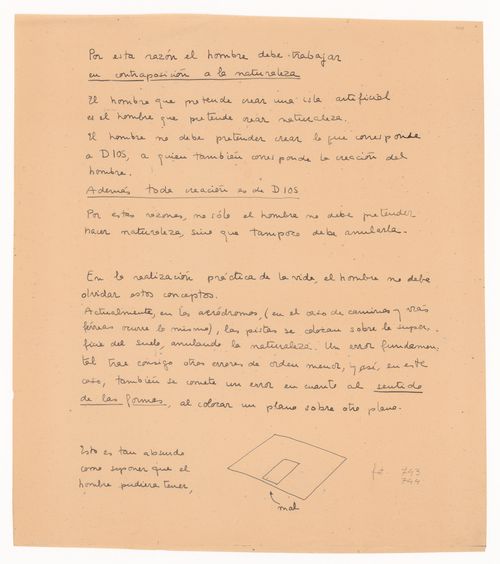 Por esta razón el hombre debe trabajar
en contraposición a la naturaleza
El hombre que pretende crear una isla artificial
es el hombre que pretende crear naturaleza.
El hombre no debe pretender crear lo que corresponde
a DIOS, a quien también corresponde la creación del
hombre.
Además toda creación es de DIOS
Por estas razones, no sólo el hombre no debe pretender
hacer naturaleza, sino que tampoco debe anularla.
En la realización práctica de la vida, el hombre no debe
olvidar estos conceptos.
Actualmente, en los aeródromos, (en el caso de caminos y vías
férreas ocurre lo mismo), las pistas se colocan sobre la super-
ficie del suelo, anulando la naturaleza. Un error fundamen-
tal trae consigo otros errores de orden menor, y así, en este
caso, también se comete un error en cuanto al sentido
de las formas, al colocar un plano sobre otro plano.
Esto es tan absurdo
como suponer que el
hombre pudiera tener,
mal
fot. 743
744